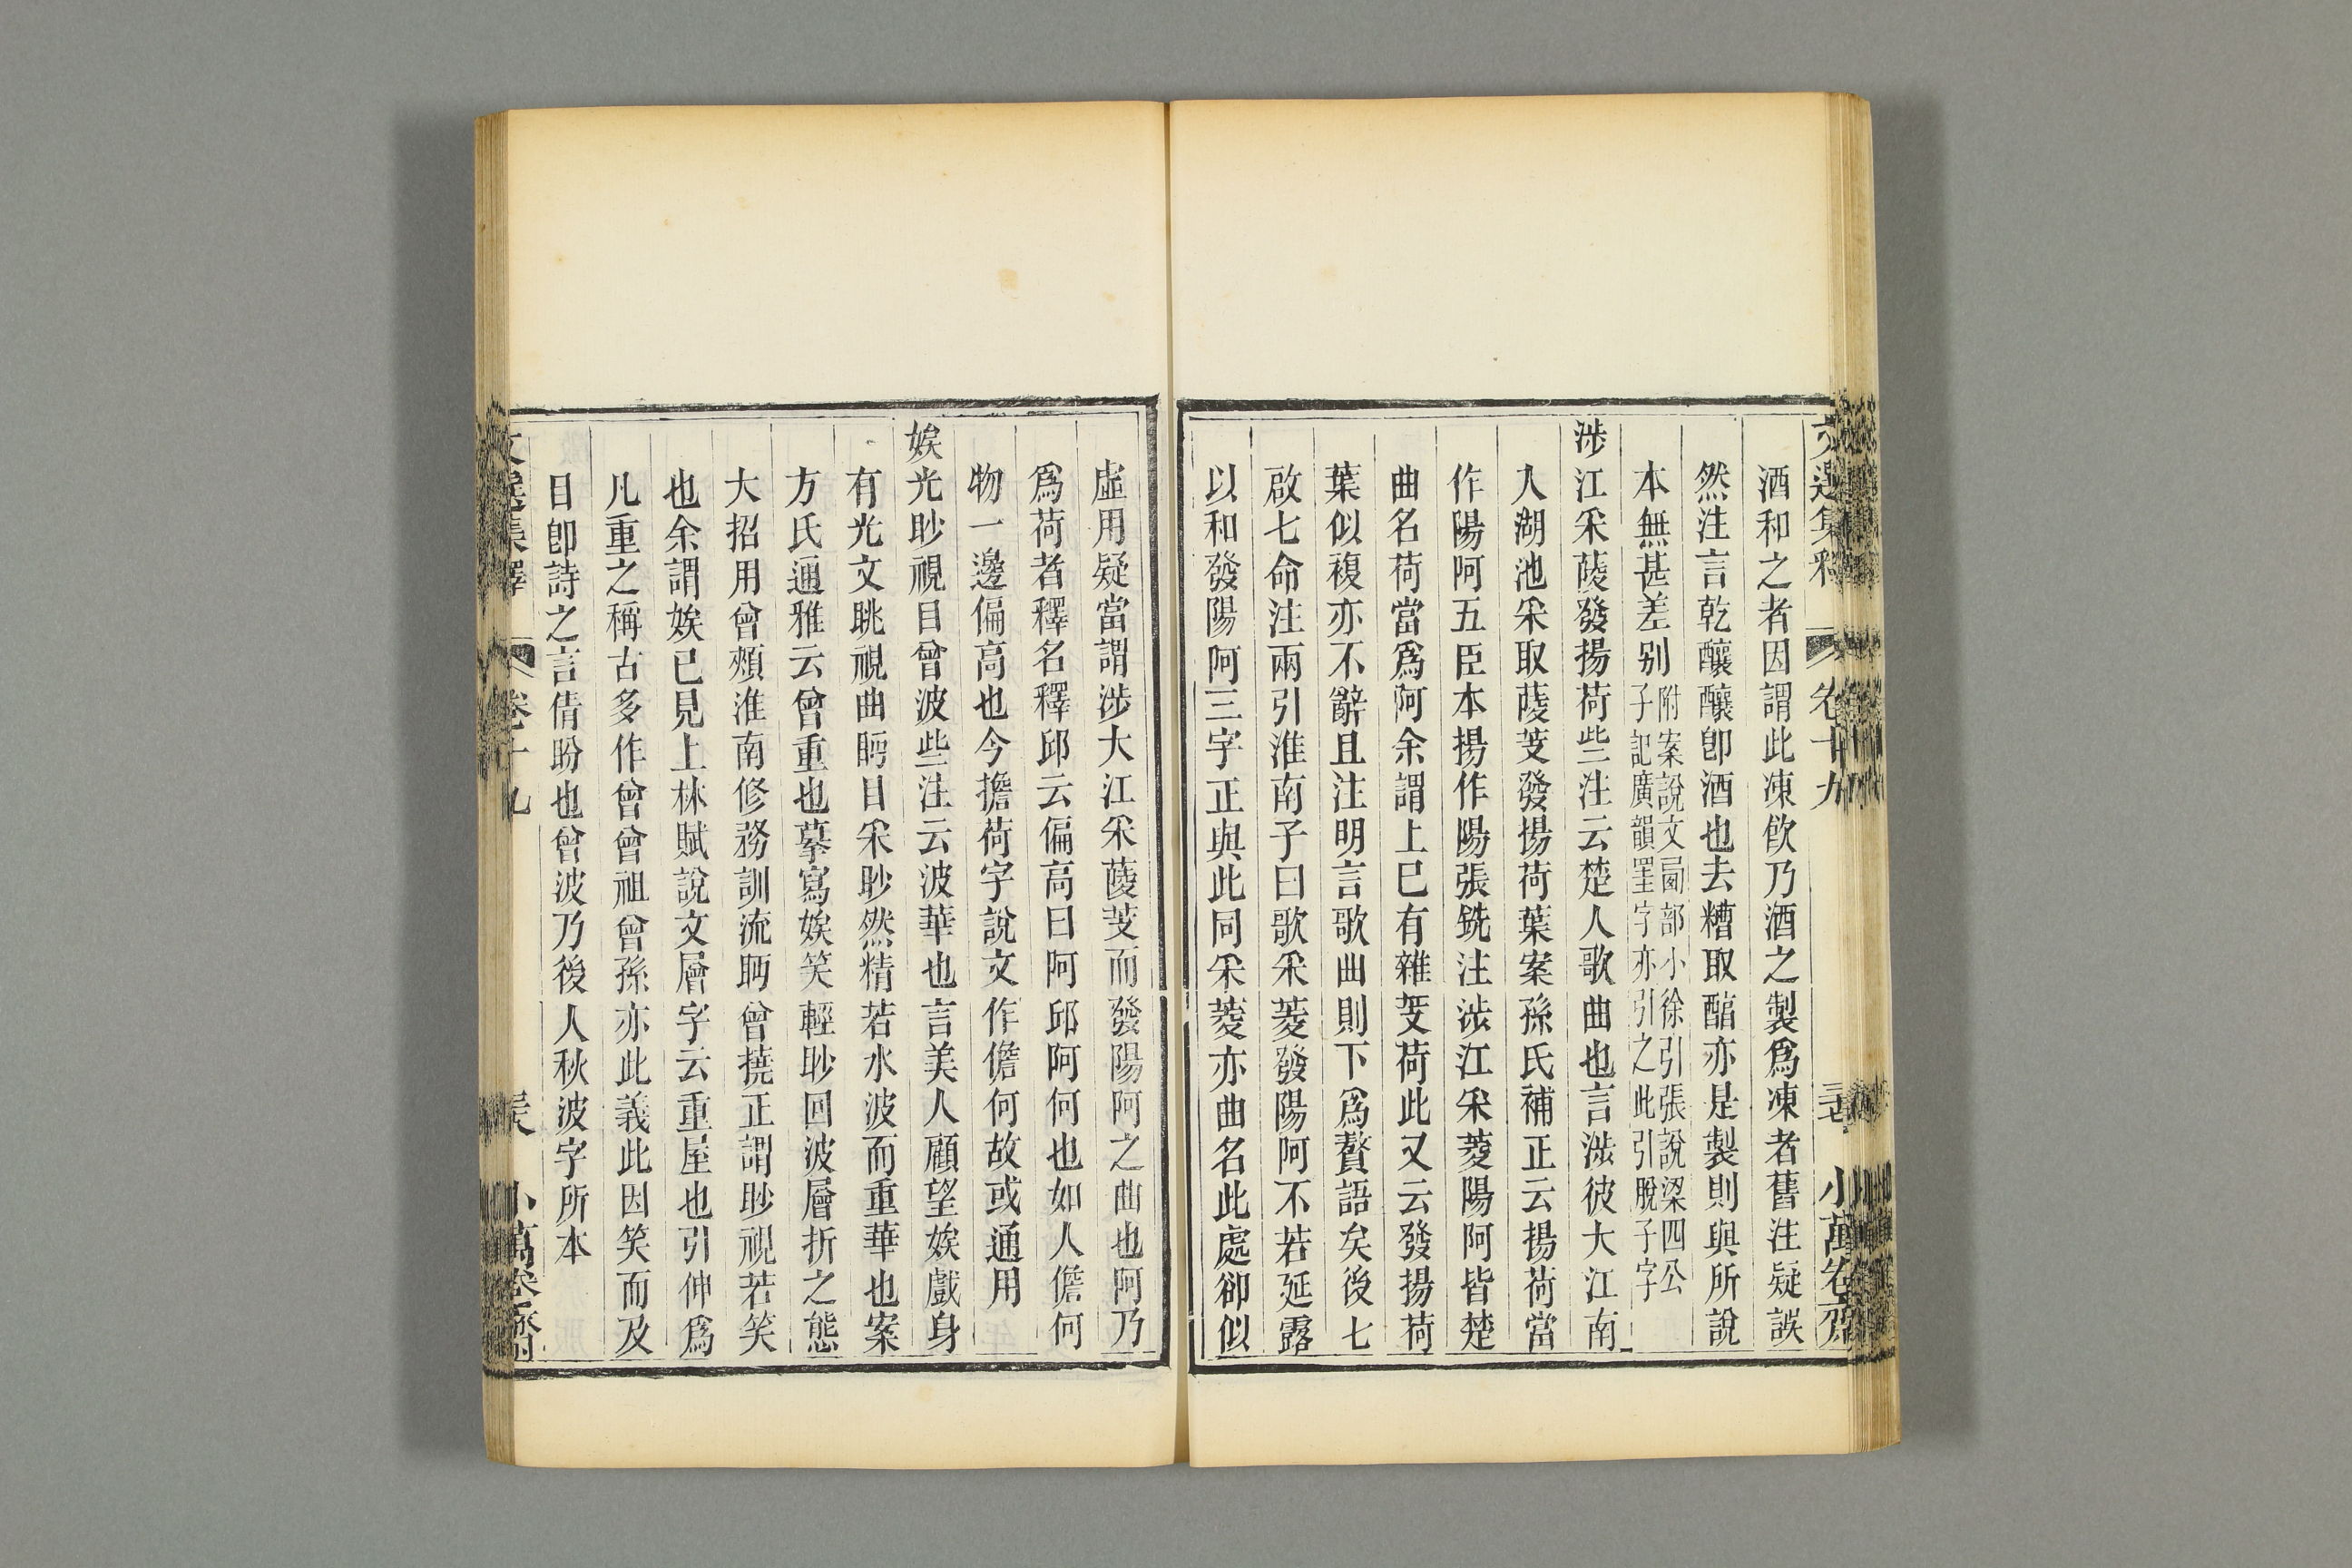 文選集釋 卷十九 三七 小萬卷齋
酒和之者因謂此凍飮乃酒之製爲凍者舊注疑誤
然注言乾釀釀卽酒也去糟取醅亦是製則與所說
本無甚差别附案說文㗊部小徐引張說梁四公子記廣韻㘝字亦引之此引脫子字
涉江采蓤發揚荷些注云楚人歌曲也言涉彼大江南
入湖池采取蓤芰發揚荷葉案孫氏補正云揚荷當
作陽阿五臣本揚作陽張銑注涉江采菱陽阿皆楚
曲名荷當爲阿余謂上巳有雜芰荷此又云發揚荷
葉似複亦不辭且注明言歌曲則下爲贅語矣後七
啟七命注兩引淮南子曰歌采菱發陽阿不若延露
以和發陽阿三字正與此同采菱亦曲名此處卻似
虛用疑當謂涉大江采蓤芰而發陽阿之曲也阿乃
爲荷者釋名釋邱云偏高曰阿邱阿何也如人儋何
物一邊偏高也今擔荷字說文作儋何故或通用
娭光眇視目曾波些注云波華也言美人顧望娭戲身
有光文眺視曲眄目采眇然精若水波而重華也案
方氏通雅云曾重也摹寫娭笑輕眇回波層折之態
大招用曾頰淮南修務訓流眄曾撓正謂眇視若笑
也余謂娭已見上林賦說文層字云重屋也引伸爲
凡重之稱古多作曾曾祖曾孫亦此義此因笑而及
目卽詩之言倩盼也曾波乃後人秋波字所本
文選集釋 卷十九 三八 小萬卷齋